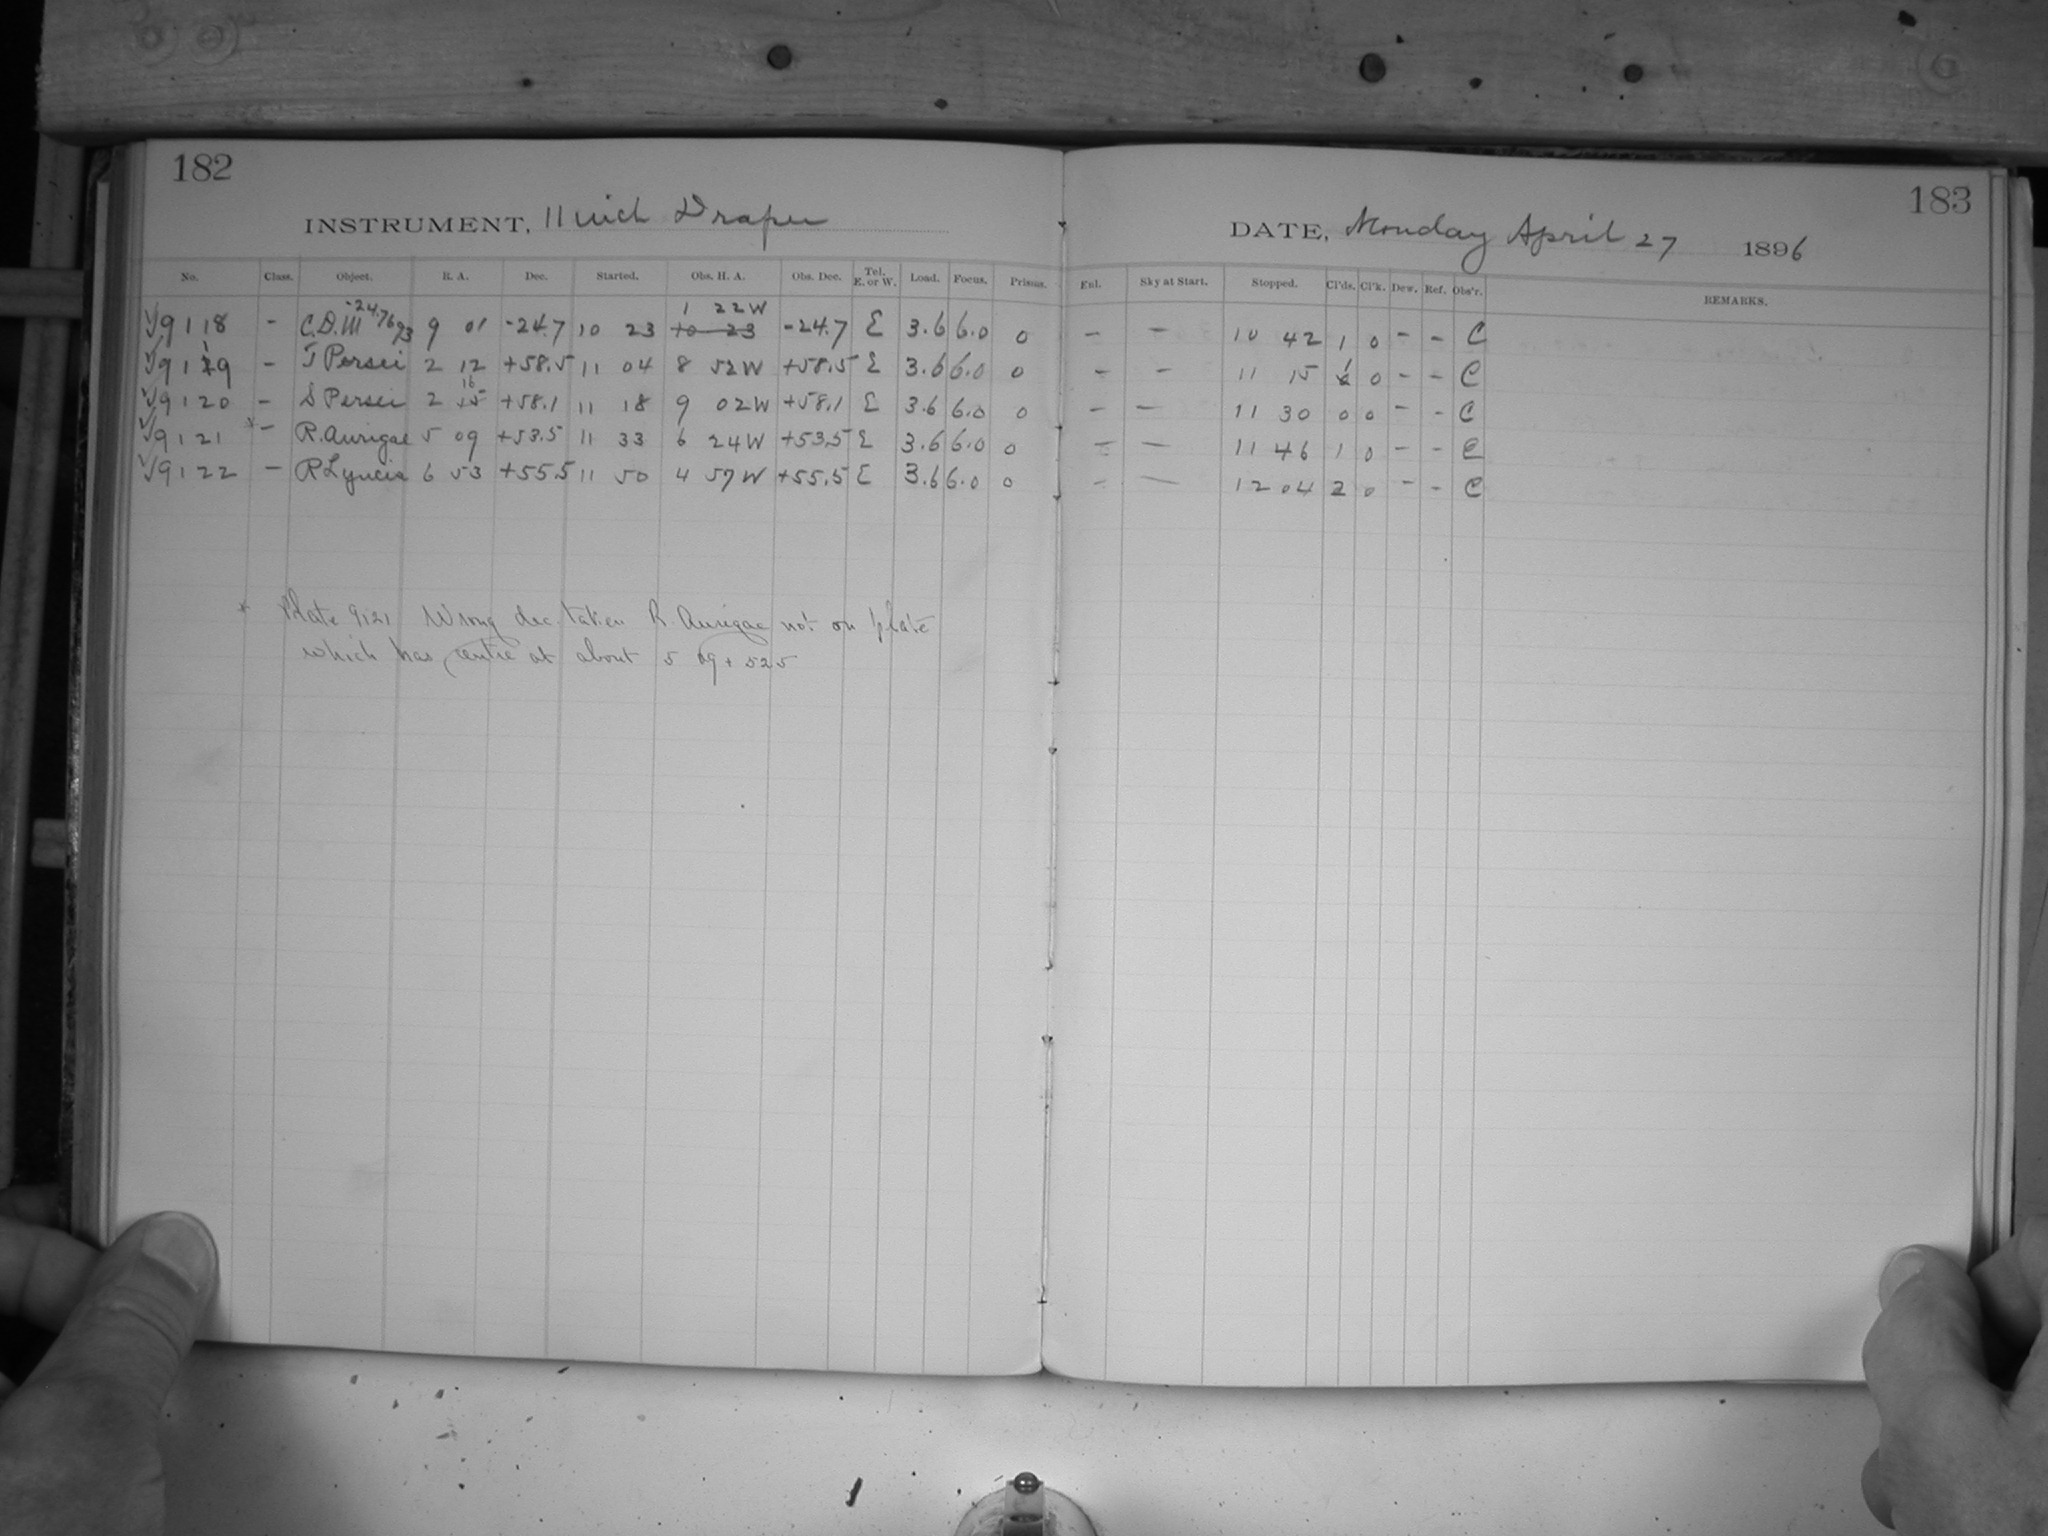 182
183
INSTRUMENT, 11 inch Draper
DATE, Monday April 27 1896
No. Class. Object. R. A. Dec. Started. Obs. H. A. Obs. Dec. Tel. E. or W. Load. Focus. Prisms. Enl. Sky at Start. Stopped. Cl'ds. Cl'k. Dew. Ref. Obs'r. REMARKS.
-24.76 1 22W
√9118 - C.D.M 93 9 01 -24.7 10 23 10 23 -24.7 E 3.6 6.0 0 - - 10 42 1 0 - - C
√9119 - T Persei 2 12 +58.5 11 04 8 52W +58.5 E 3.6 6.0 0 - - 11 15 1 0 - - C
16
√9120 - S Persei 2 15 +58.1 11 18 9 02W +58.1 E 3.6 6.0 0 - - 11 30 0 0 - - C
√9121 * - R. Aurigae 5 09 +53.5 11 33 6 24W +53.5 E 3.6 6.0 0 - - 11 46 1 0 - - C
√9122 - R Lyncis 6 53 +55.5 11 50 4 57W +55.5 E 3.6 6.0 0 - - 12 04 2 0 - - C
* Plate 9121 Wrong dec. taken R. Aurigae not on plate
which has centre at about 5 09 + 52 5